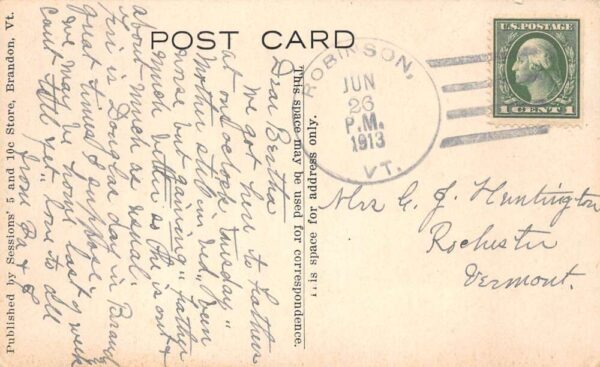 POST CARD
Published by Sessions' 5 and 10c Store, Brandon, Vt.
This space may be used for correspondence.
This space is for address only.
ROBINSON,
JUN
26
P.M.
1913
VT.
U.S. POSTAGE
1 CENT 1
Dear Bertha
We got here to Fathers
at one oclock Tuesday"
Mother still in bed, Been
worse but gaining" Father
much better so he is out &
about much as usual"
This is Douglas day in Brandon
great times I suppose.
we may be home last of week
cant tell yet" love to all
from Pa &
Mrs G. J. Huntington
Rochester
Vermont.